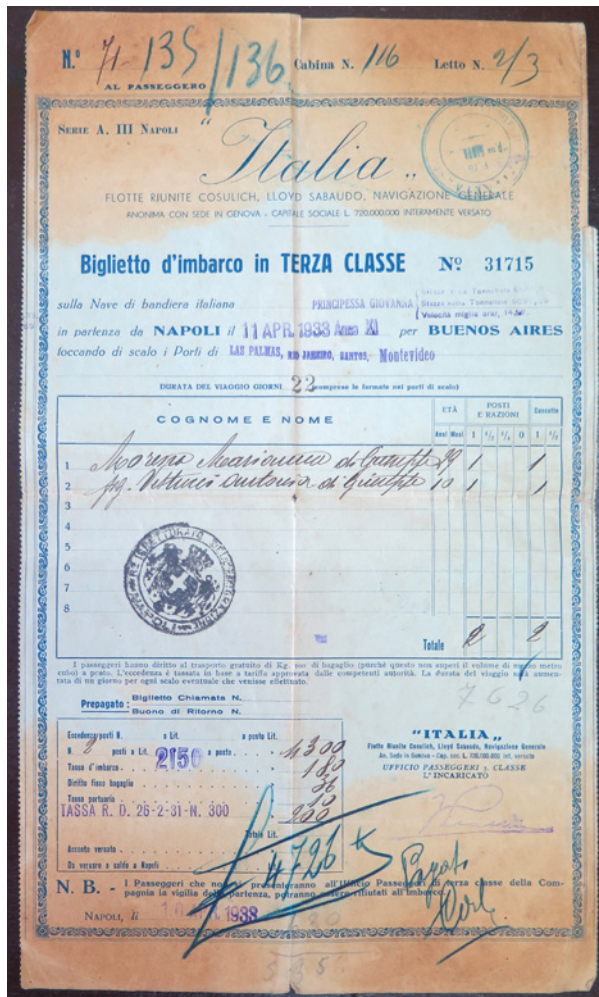 N.º 71-135/136 Cabina N. 116 Letto N. 2/3
AL PASSEGGERO
SERIE A. III NAPOLI
"Italia"
FLOTTE RIUNITE COSULICH, LLOYD SABAUDO, NAVIGAZIONE GENERALE
ANONIMA CON SEDE IN GENOVA - CAPITALE SOCIALE L. 720.000.000 INTERAMENTE VERSATO
Biglietto d'imbarco in TERZA CLASSE Nº 31715
sulla Nave di bandiera italiana PRINCIPESSA GIOVANNA
Velocità miglia orar, 14
in partenza da NAPOLI il 11 APR. 1933 Anno XI per BUENOS AIRES
toccando di scalo i Porti di LAS PALMAS, RIO JANEIRO, SANTOS, Montevideo
DURATA DEL VIAGGIO GIORNI 22 (comprese le fermate nei porti di scalo)
COGNOME E NOME
ETÀ
POSTI E RAZIONI
Cuccette
Anni Mesi 1 1/2 1/4 0 1 1/2
1 Morena Marianna di Giuseppe 29 1 1
2 fig. Antonia di Giuseppe 10 1 1
3
4
5
6
7
8
Totale 2 2
I passeggeri hanno diritto al trasporto gratuito di Kg. 100 di bagaglio (purchè questo non superi il volume di mezzo metro
cubo) a posto. L'eccedenza è tassata in base a tariffa approvata dalle competenti autorità. La durata del viaggio sarà aumen-
tata di un giorno per ogni scalo eventuale che venisse effettuato.
7626
Prepagato: Biglietto Chiamata N.
Buono di Ritorno N.
Essendo posti N. a Lit. a posto Lit.
N. 2 posti a Lit. 2150 a posto 4300
Tassa d'imbarco 180
Diritto fisso bagaglio 36
Tassa portuaria 10
TASSA R. D. 26-2-31-N. 300 200
Totale Lit.
4726
Acconto versato
Da versare a saldo a Napoli
"ITALIA"
Flotte Riunite Cosulich, Lloyd Sabaudo, Navigazione Generale
An. Sede in Genova - Cap. soc. L. 720.000.000 int. versato
UFFICIO PASSEGGERI 3. CLASSE
L'INCARICATO
N. B. - I Passeggeri che non si presenteranno all'Ufficio Passeggeri di terza classe della Com-
pagnia la vigilia della partenza, potranno essere rifiutati all'imbarco.
NAPOLI, li 10 APR. 1933